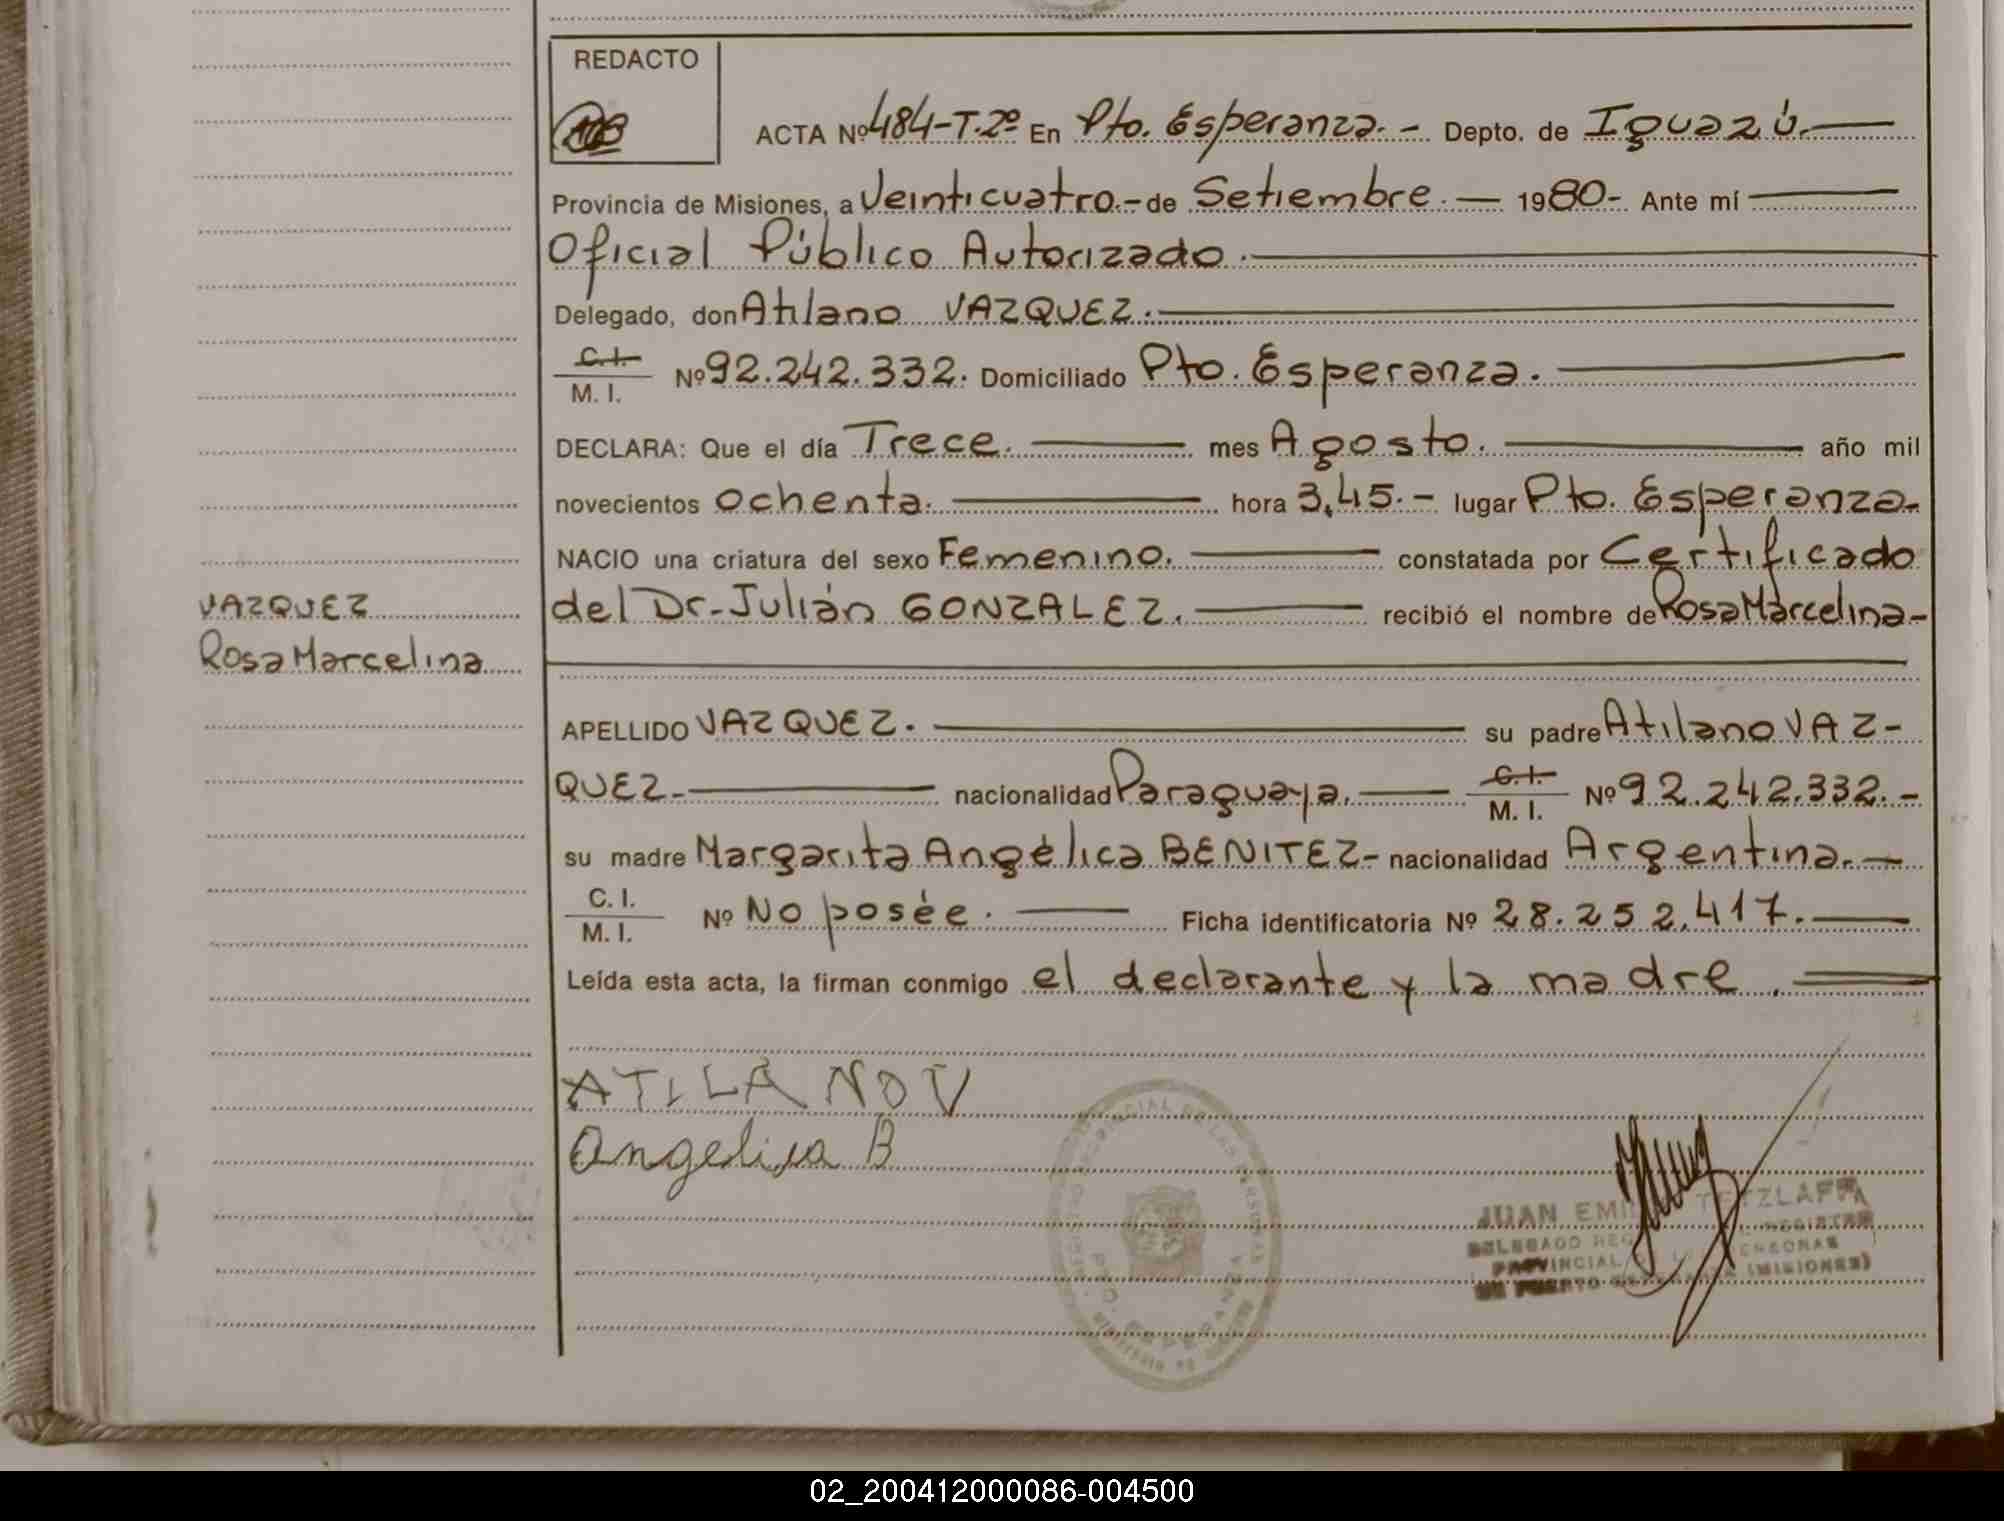 REDACTO
ACTA Nº 484-T.2º En Pto. Esperanza.- Depto. de Iguazú.
Provincia de Misiones, a Veinticuatro.- de Setiembre.- 1980- Ante mí
Oficial Público Autorizado.
Delegado, don Atilano VAZQUEZ.
C.I.
M. I. Nº 92.242.332. Domiciliado Pto. Esperanza.
DECLARA: Que el día Trece. mes Agosto. año mil
novecientos ochenta. hora 3,45.- lugar Pto. Esperanza-
NACIO una criatura del sexo Femenino. constatada por Certificado
del Dr. Julián GONZALEZ. recibió el nombre de Rosa Marcelina-
VAZQUEZ
Rosa Marcelina
APELLIDO VAZQUEZ. su padre Atilano VAZ-
QUEZ- nacionalidad Paraguaya.
C.I.
M. I. Nº 92.242.332.-
su madre Margarita Angélica BENITEZ- nacionalidad Argentina.-
C. I.
M. I. Nº No posée. Ficha identificatoria Nº 28.252.417.
Leída esta acta, la firman conmigo el declarante y la madre.
ATILANO V
Angelica B
JUAN EMI TETZLAFF
DELEGADO REG REGISTRO
PROVINCIAL PERSONAS
EN PUERTO ESPERANZA (MISIONES)
PTO. ESPERANZA
02_200412000086-004500